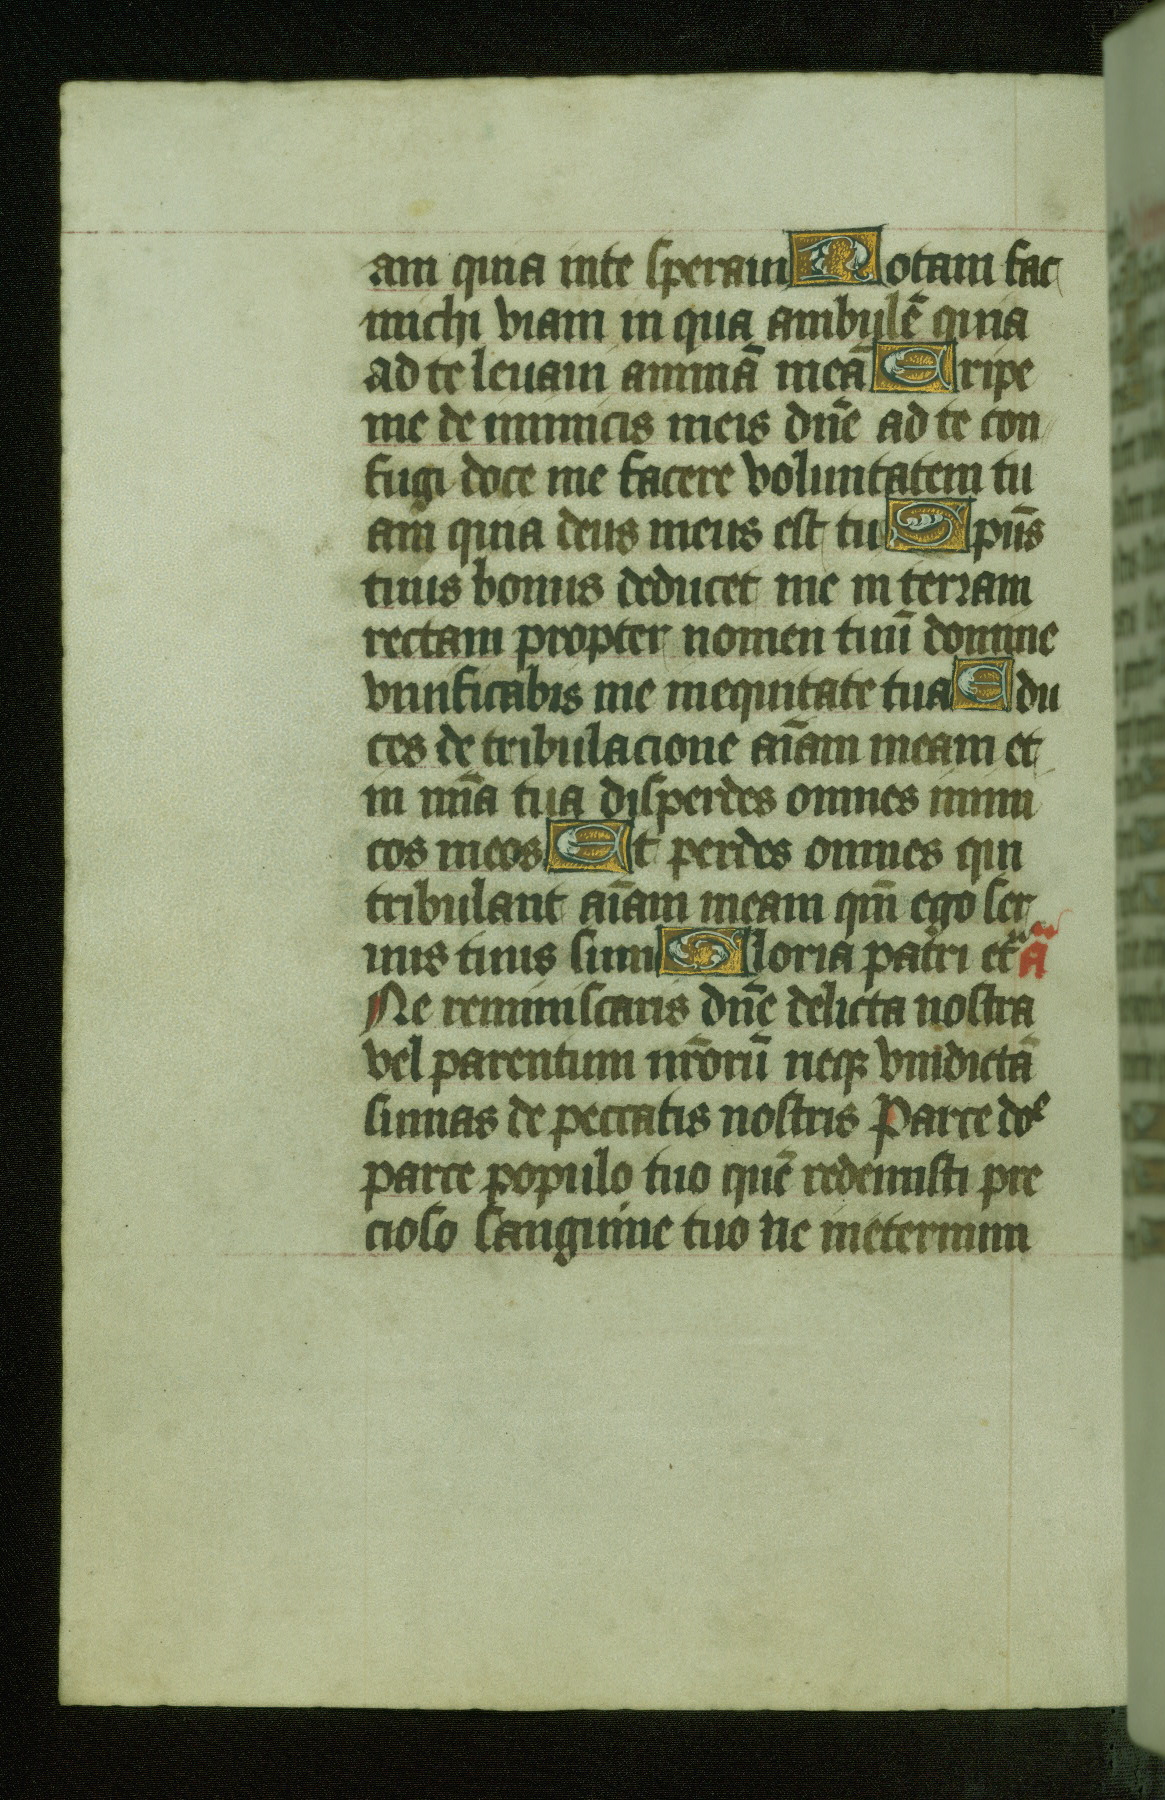 am quia inte speraui Notam fac
michi viam in qua ambulē quia
ad te leuaui animā meā Eripe
me de inimicis meis dn̄e ad te con
fugi doce me facere voluntatem tu
am quia deus meus est tu Spūs
tuus bonus deducet me in terram
rectam propter nomen tuū domine
viuificabis me inequitate tua Edu
ces de tribulacione aīam meam et
in mīa tua disperdes omnes inimi
cos meos Et perdes omnes qui
tribulant aīam meam qm̄ ego ser
uus tuus sum Gloria patri et A
Ne reminiscaris dn̄e delicta nostra
vel parentum nr̄orū neqꝫ vindictā
sumas de peccatis nostris Parce doͤ
parce populo tuo quē redemisti pre
cioso sanguine tuo ne ineternum